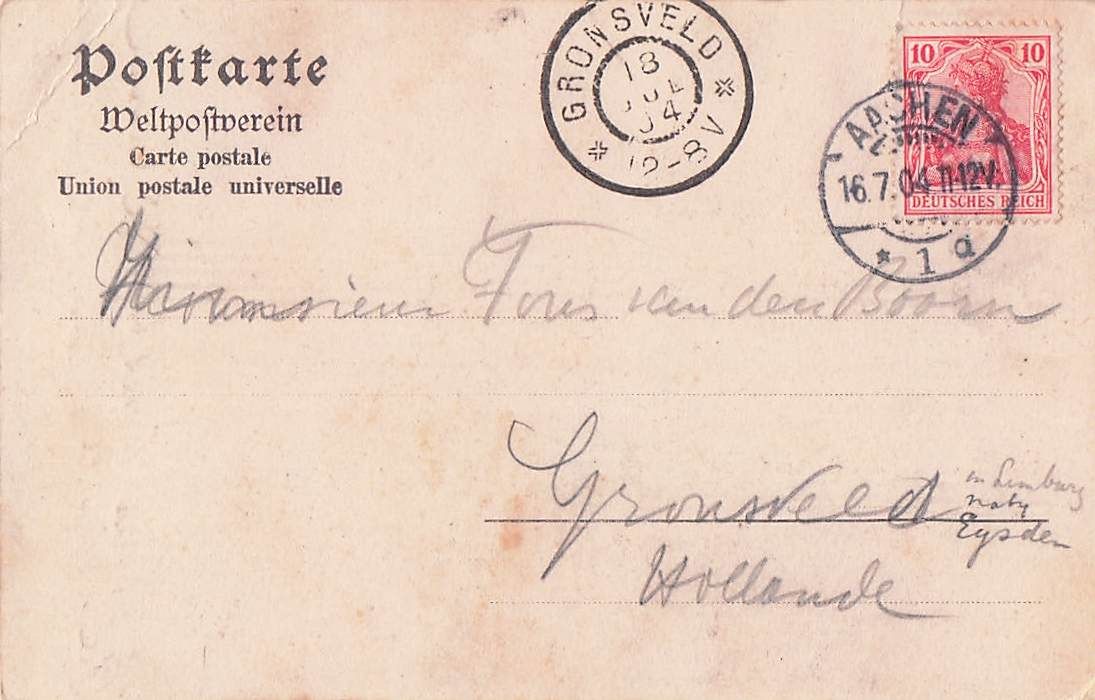 Postkarte
Weltpostverein
Carte postale
Union postale universelle
GRONSVELD
18
JUL
04
12-8V
10 10
DEUTSCHES REICH
AACHEN
16.7.04 11-12V.
* 1 d
van den Boorn
Gronsveld
in Limburg
Eysden
Hollande